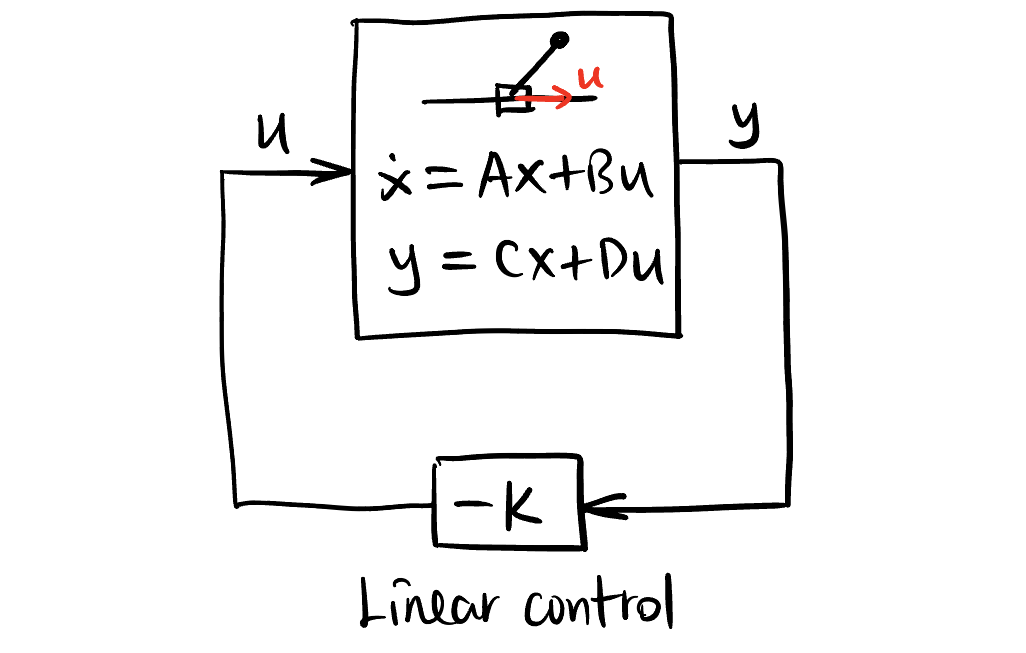 u
u
y
ẋ = Ax+Bu
y = Cx+Du
-K
Linear control